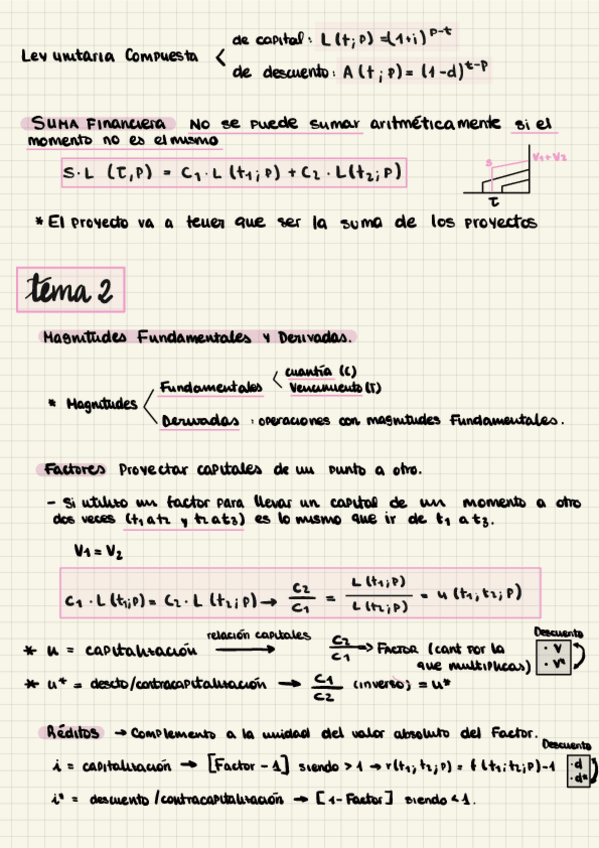 de capital: L(t;p) = (1+i)^p-t
Ley unitaria Compuesta <
de descuento: A(t;p) = (1-d)^t-p
SUMA Financiera No se puede sumar aritméticamente si el
momento no es el mismo
S·L (τ,p) = C1·L(t1;p) + C2·L(t2;p)
S V1+V2
τ
* El proyecto va a tener que ser la suma de los proyectos
tema 2
Magnitudes Fundamentales y Derivadas.
cuantía (C)
Fundamentales <
Vencimiento (T)
* Magnitudes <
Derivadas : operaciones con magnitudes Fundamentales.
Factores Proyectar capitales de un punto a otro.
- Si utilizo un factor para llevar un capital de un momento a otro
dos veces (t1 a t2 y t2 a t3) es lo mismo que ir de t1 a t3.
V1 = V2
C1·L(t1;p) = C2·L(t2;p) → C2/C1 = L(t1;p)/L(t2;p) = u(t1,t2;p)
* u = capitalización relación capitales → C2/C1 → Factor (cant por la
que multiplicas)
Descuento
· v
· v*
* u* = descto/contracapitalización → C1/C2 (inverso) = u*
Réditos → Complemento a la unidad del valor absoluto del Factor.
Descuento
i = capitalización → [Factor - 1] siendo > 1 → r(t1;t2;p) = f(t1;t2;p)-1
· d
· d*
i* = descuento/contracapitalización → [1 - Factor] siendo < 1.